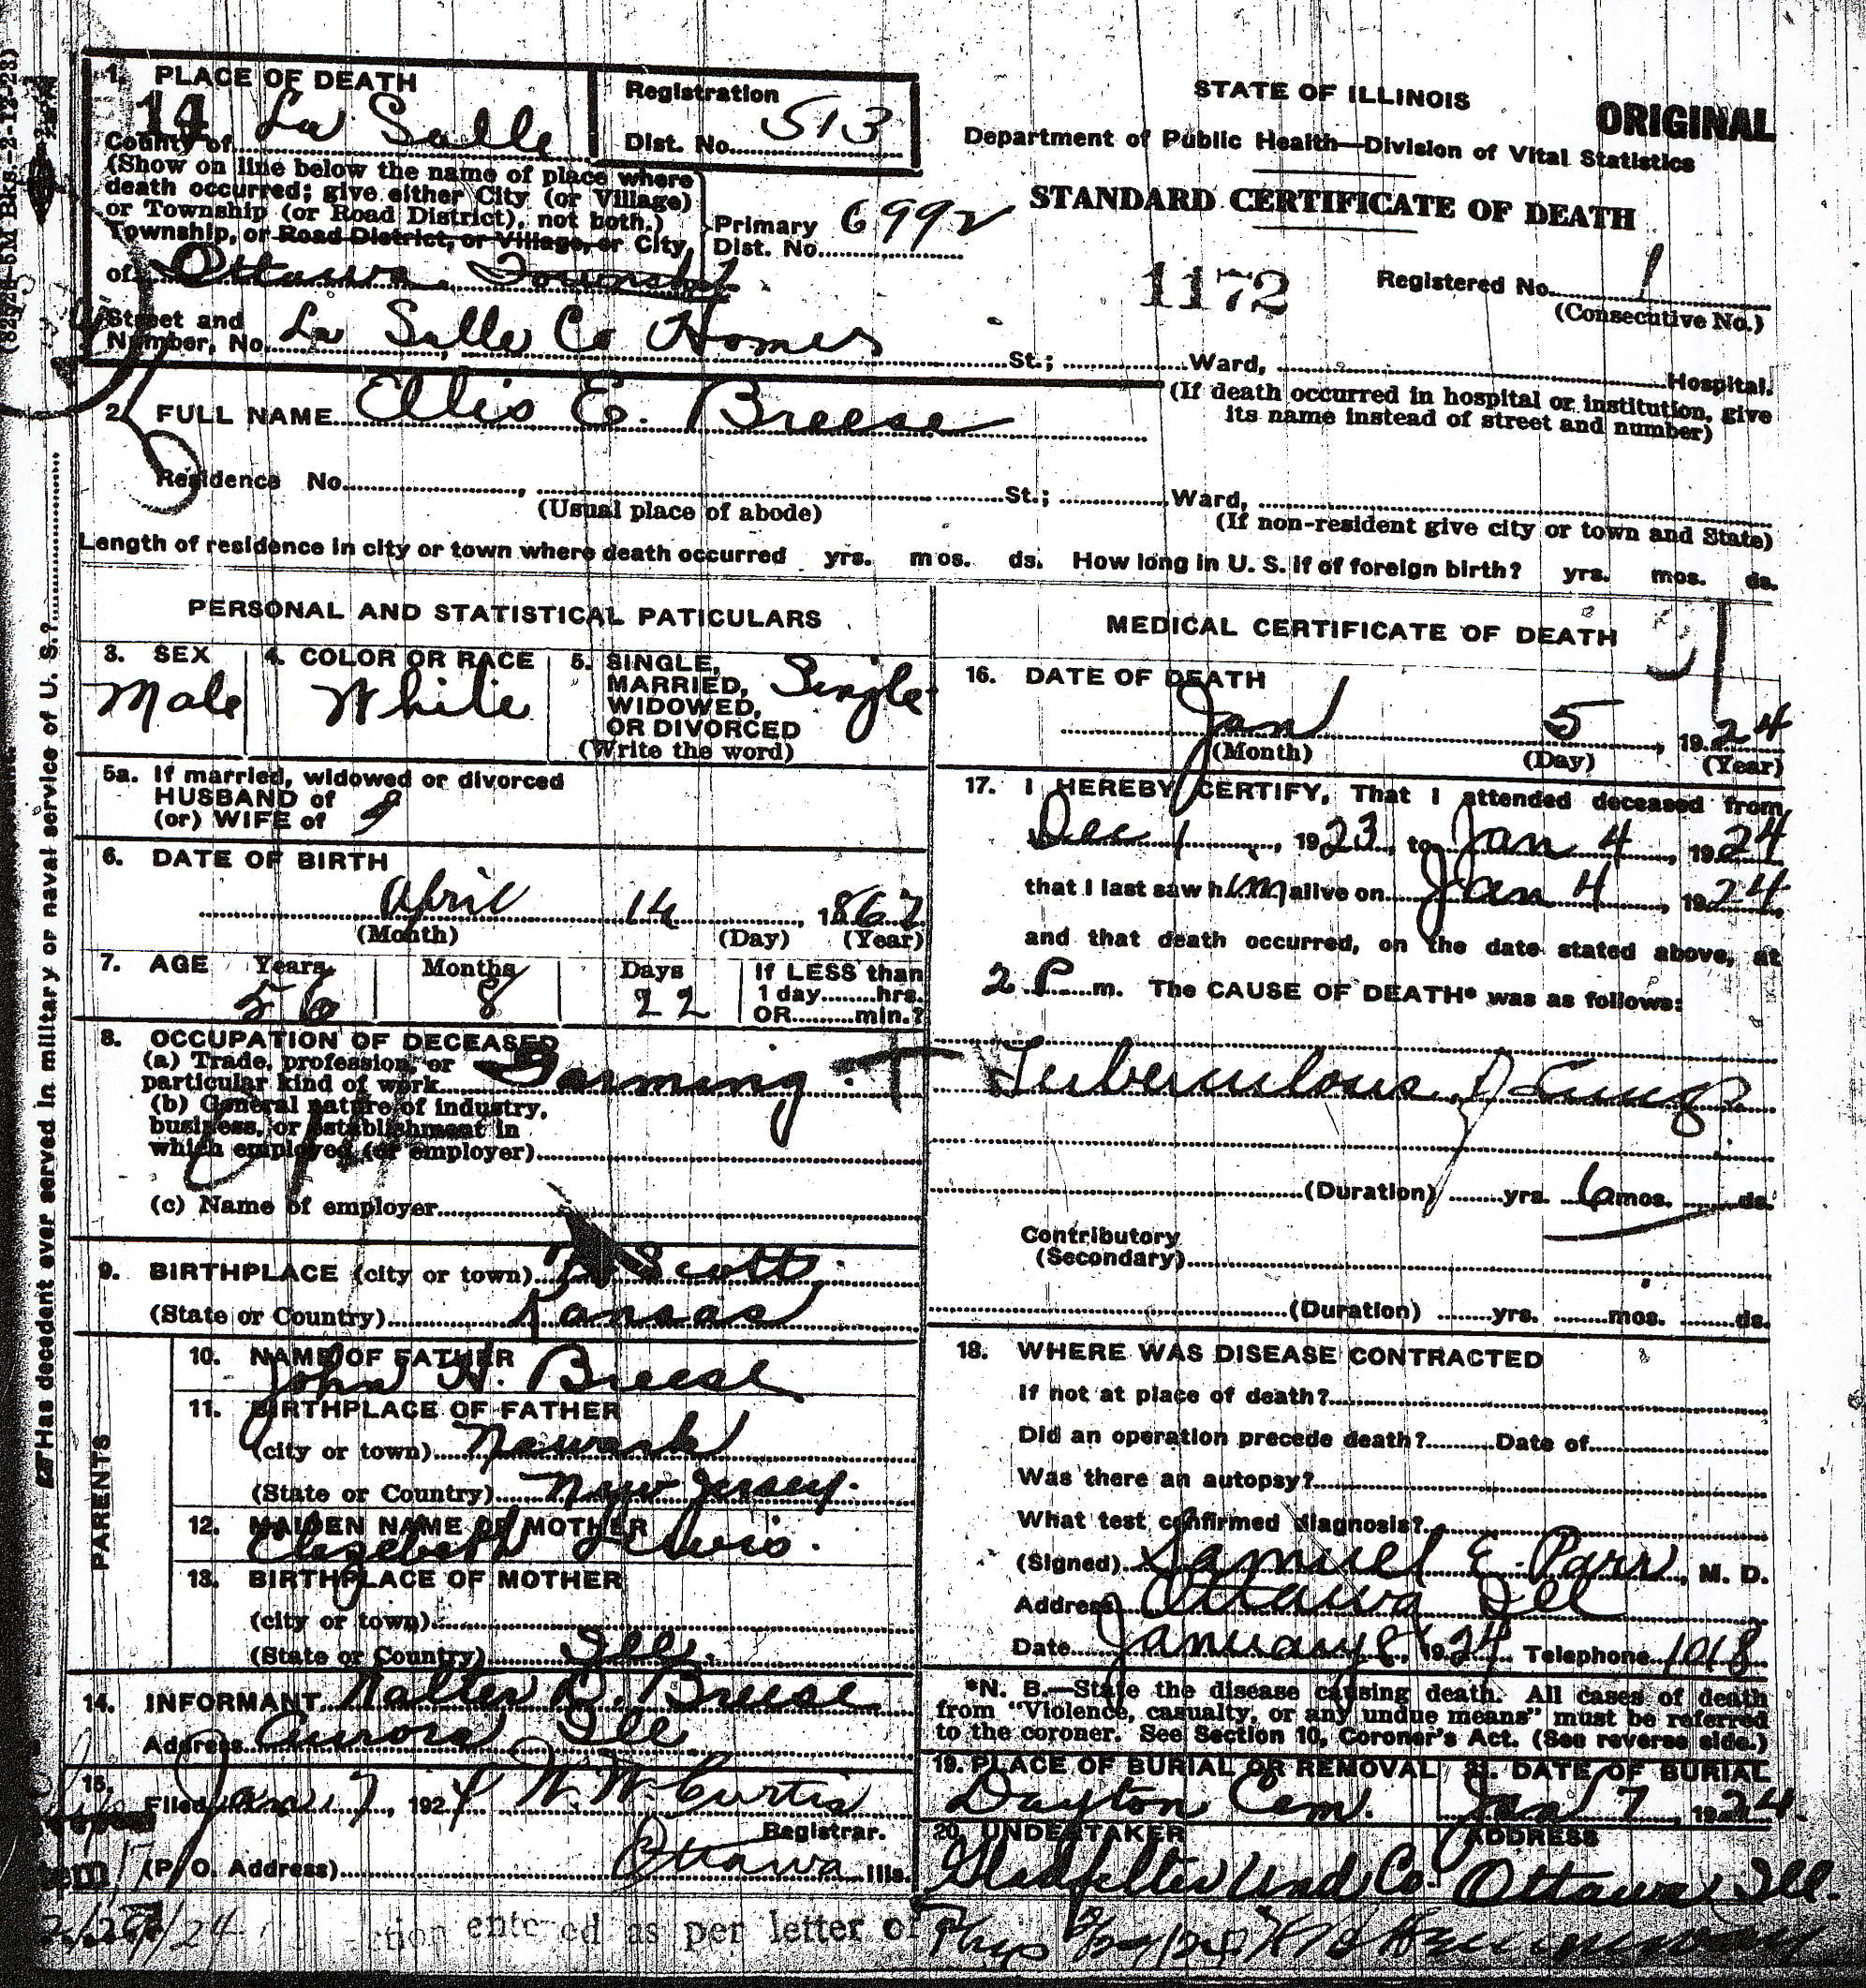 (82928-5M Bks.-2-12-23)
☞Has decedent ever served in military or naval service of U. S.?
1. PLACE OF DEATH
14
County of La Salle
(Show on line below the name of place where
death occurred; give either City (or Village)
or Township (or Road District), not both.)
Township, or Road District, or Village, or City,
of Ottawa Township
Street and
Number, No. La Salle Co Homes St.; Ward, Hospital.
Registration
Dist. No. 513
Primary
Dist. No. 6992
STATE OF ILLINOIS
ORIGINAL
Department of Public Health—Division of Vital Statistics
STANDARD CERTIFICATE OF DEATH
1172
Registered No. 1
(Consecutive No.)
(If death occurred in hospital or institution, give
its name instead of street and number)
2. FULL NAME Ellis E. Breese
Residence No. , St.; Ward,
(Usual place of abode)
(If non-resident give city or town and State)
Length of residence in city or town where death occurred yrs. mos. ds. How long in U. S. if of foreign birth? yrs. mos. ds.
PERSONAL AND STATISTICAL PATICULARS
3. SEX
Male
4. COLOR OR RACE
White
5. SINGLE,
MARRIED,
WIDOWED,
OR DIVORCED
(Write the word)
Single
5a. If married, widowed or divorced
HUSBAND of
(or) WIFE of
6. DATE OF BIRTH
April 14, 1867
(Month) (Day) (Year)
7. AGE Years Months Days
56 8 22
If LESS than
1 day hrs.
OR min.?
8. OCCUPATION OF DECEASED
(a) Trade, profession, or
particular kind of work Farming
(b) General nature of industry,
business, or establishment in
which employed (or employer)
(c) Name of employer
9. BIRTHPLACE (city or town) Ft Scott
(State or Country) Kansas
PARENTS
10. NAME OF FATHER
John H. Breese
11. BIRTHPLACE OF FATHER
(city or town) Newark
(State or Country) New Jersey.
12. MAIDEN NAME OF MOTHER
Elizebeth Lewis.
13. BIRTHPLACE OF MOTHER
(city or town)
(State or Country) Ill.
14. INFORMANT Walter B. Breese
Address Aurora Ill
15.
Filed Jan 7, 1924 W. W. Curtis
Registrar.
(P. O. Address) Ottawa Ills.
MEDICAL CERTIFICATE OF DEATH
31
16. DATE OF DEATH
Jan 5, 1924
(Month) (Day) (Year)
17. I HEREBY CERTIFY, That I attended deceased from
Dec 1, 1923, to Jan 4, 1924
that I last saw him alive on Jan 4, 1924
and that death occurred, on the date stated above, at
2 P m. The CAUSE OF DEATH* was as follows:
Tuberculosis of Lungs
(Duration) yrs. 6 mos. ds.
Contributory
(Secondary)
(Duration) yrs. mos. ds.
18. WHERE WAS DISEASE CONTRACTED
If not at place of death?
Did an operation precede death? Date of
Was there an autopsy?
What test confirmed diagnosis?
(Signed) Samuel E. Parr, M. D.
Address Ottawa Ill
Date January 8, 1924 Telephone 1018
*N. B.—State the disease causing death. All cases of death
from "Violence, casualty, or any undue means" must be referred
to the coroner. See Section 10, Coroner's Act. (See reverse side.)
19. PLACE OF BURIAL OR REMOVAL
Dayton Cem.
21. DATE OF BURIAL
Jan 7, 1924.
20. UNDERTAKER ADDRESS
Gladfelter Und Co. Ottawa Ill.
entered as per letter of
Phys